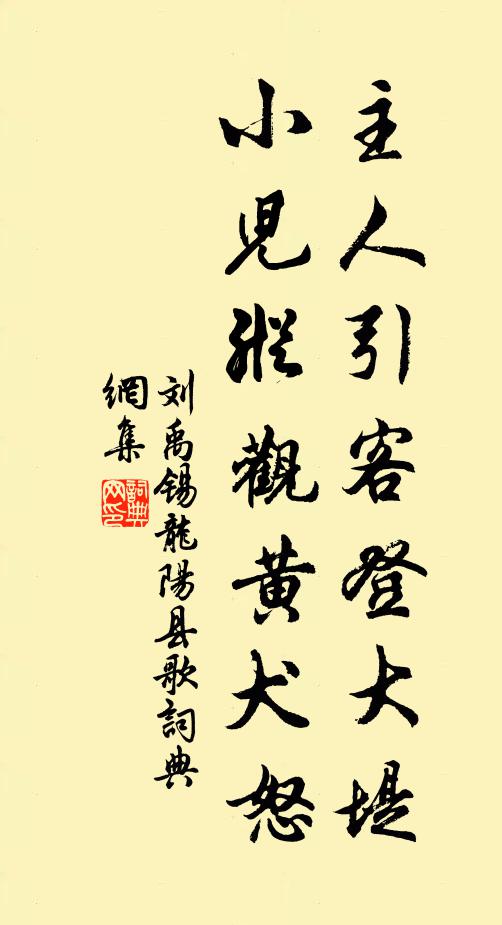 主人引客登大堤
小児縱觀黄犬怒
刘禹锡龍陽县歌詞典
網集
詞典
网印